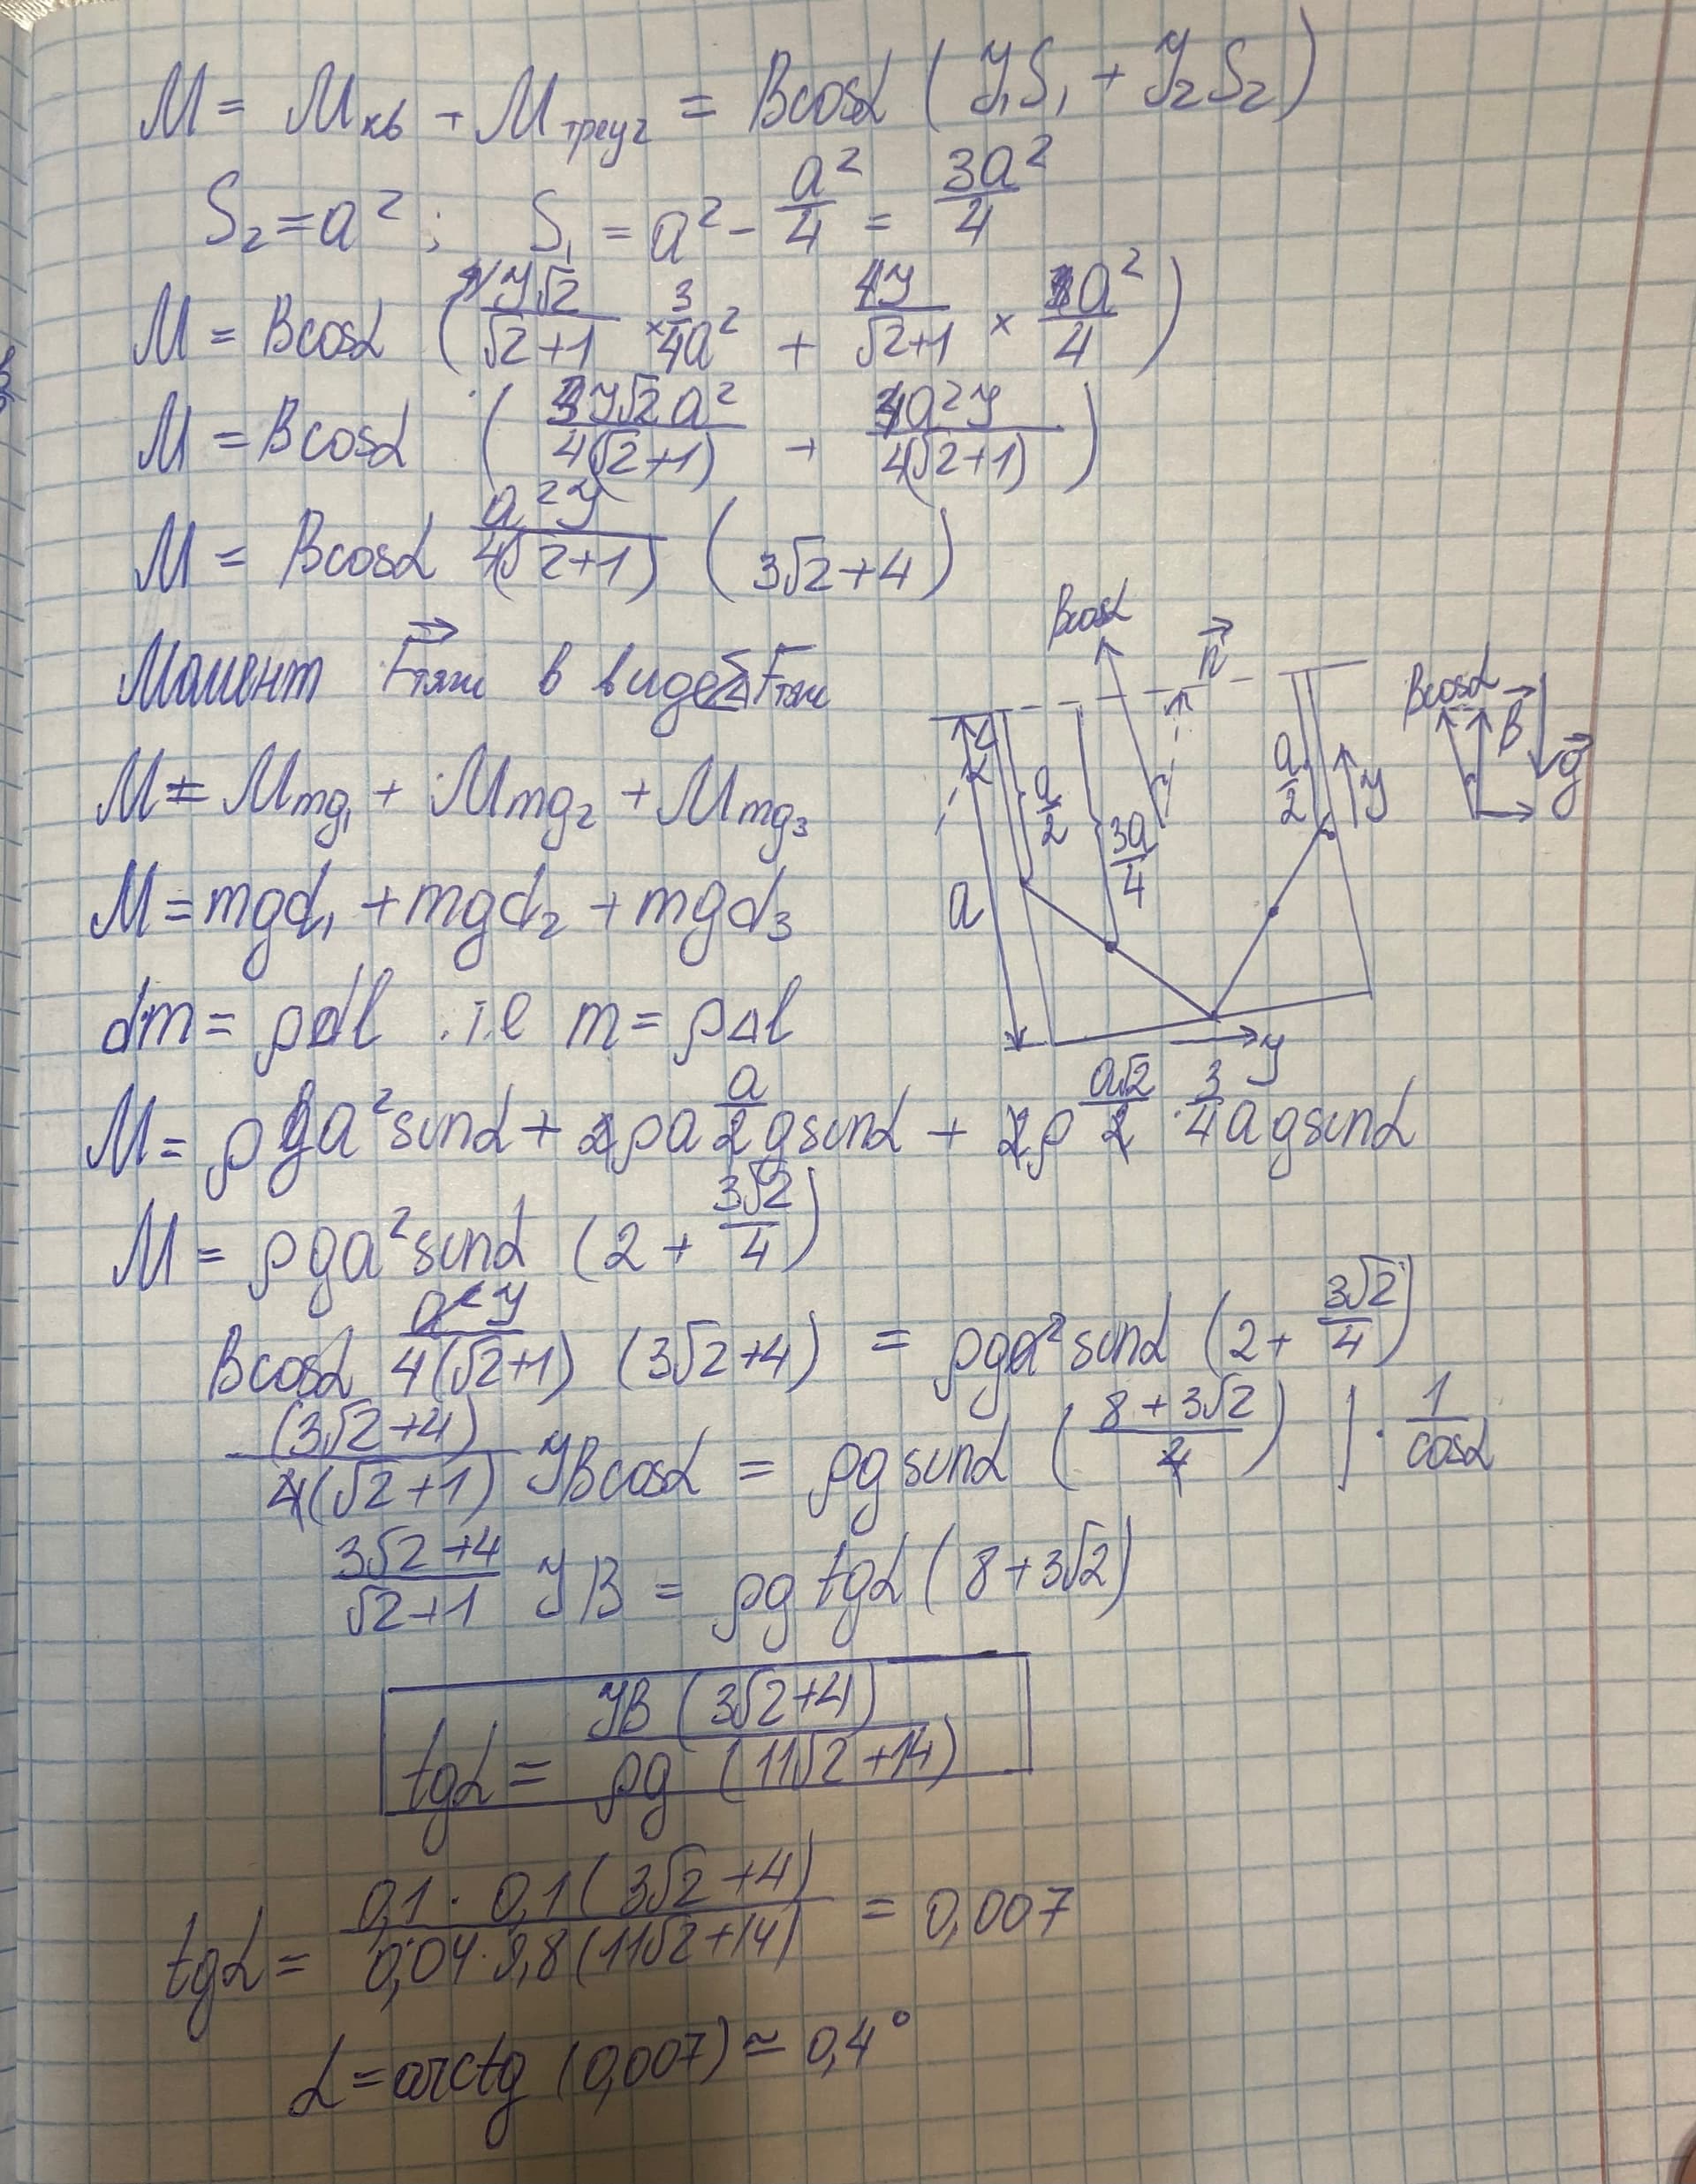 M = Mкв + Mтреуг = Bcosα (J₁S₁ + J₂S₂)
S₂ = a² ; S₁ = a² - a²/4 = 3a²/4
M = Bcosα (J√2/(√2+1) × 3/4 a² + 4J/(√2+1) × a²/4)
M = Bcosα (3J√2a²/(4(√2+1)) + 4a²J/(4(√2+1)))
M = Bcosα a²J/(4(√2+1)) (3√2+4)
Момент F⃗тяж в виде ΣFтяж
M = Mmg₁ + Mmg₂ + Mmg₃
M = mgd₁ + mgd₂ + mgd₃
dm = ρdl . i.e m = ρΔl
Bcosα
n⃗
Bcosα
B⃗
g⃗
α
a/2
3a/4
a/2
y
a
y
M = ρga²sinα + 2ρa a/2 gsinα + 2ρ a√2/2 · 3/4 a gsinα
M = ρga²sinα (2 + 3√2/4)
Bcosα a²J/(4(√2+1)) (3√2+4) = ρga²sinα (2 + 3√2/4)
(3√2+4)/(4(√2+1)) JBcosα = ρgsinα ((8+3√2)/4) | · 1/cosα
(3√2+4)/(√2+1) JB = ρg tgα (8+3√2)
tgα = JB (3√2+4)/(ρg (11√2+14))
tgα = 0,1 · 0,1(3√2+4)/(0,04·9,8(11√2+14)) = 0,007
α = arctg (0,007) ≃ 0,4°